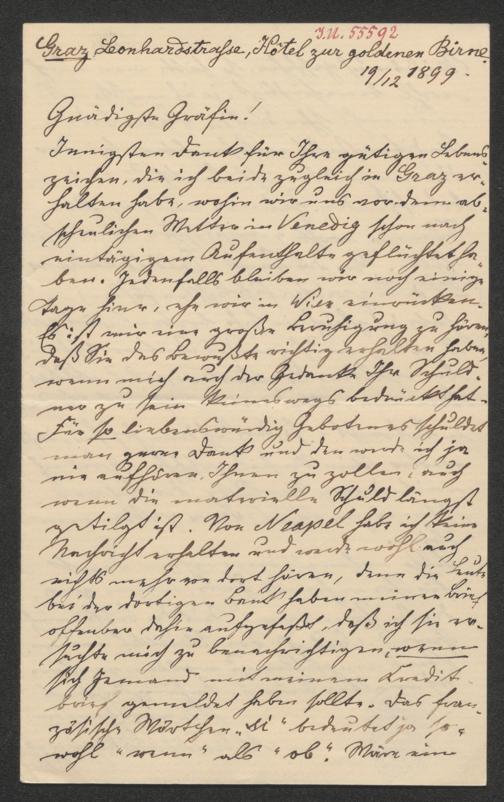 I.N. 55592
Graz, Leonhardstrasse, Hôtel zur goldenen Birne
19/12 1899.
Gnädigste Gräfin!
Innigsten Dank für Ihre gütigen Lebens-
zeichen, die ich beide zugleich in Graz er-
halten habe, wohin wir uns vor dem ab-
scheulichen Wetter in Venedig schon nach
eintägigem Aufenthalte geflüchtet ha-
ben. Jedenfalls bleiben wir noch einige
Tage hier, ehe wir in Wien einrücken.
Es ist mir eine große Beruhigung zu hören,
daß Sie das Bewußte richtig erhalten haben,
wenn mich auch der Gedanke Ihr Schuld-
ner zu sein keineswegs bedrückt hat.
Für so liebenswürdig Gebotenes schuldet
man gerne Dank und den werde ich ja
nie aufhören, Ihnen zu zollen, auch
wenn die materielle Schuld längst
getilgt ist. Von Neapel habe ich keine
Nachricht erhalten und werde wohl auch
nichts mehr von dort hören, denn die Leute
bei der dortigen Bank haben meinen Brief
offenbar dahin aufgefaßt, daß ich sie er-
suchte mich zu benachrichtigen, wenn
sich Jemand mit meinem Credit-
brief gemeldet haben sollte. Das fran-
zösische Wörtchen „si“ bedeutet ja so-
wohl „wenn“ als „ob“. Wäre ein